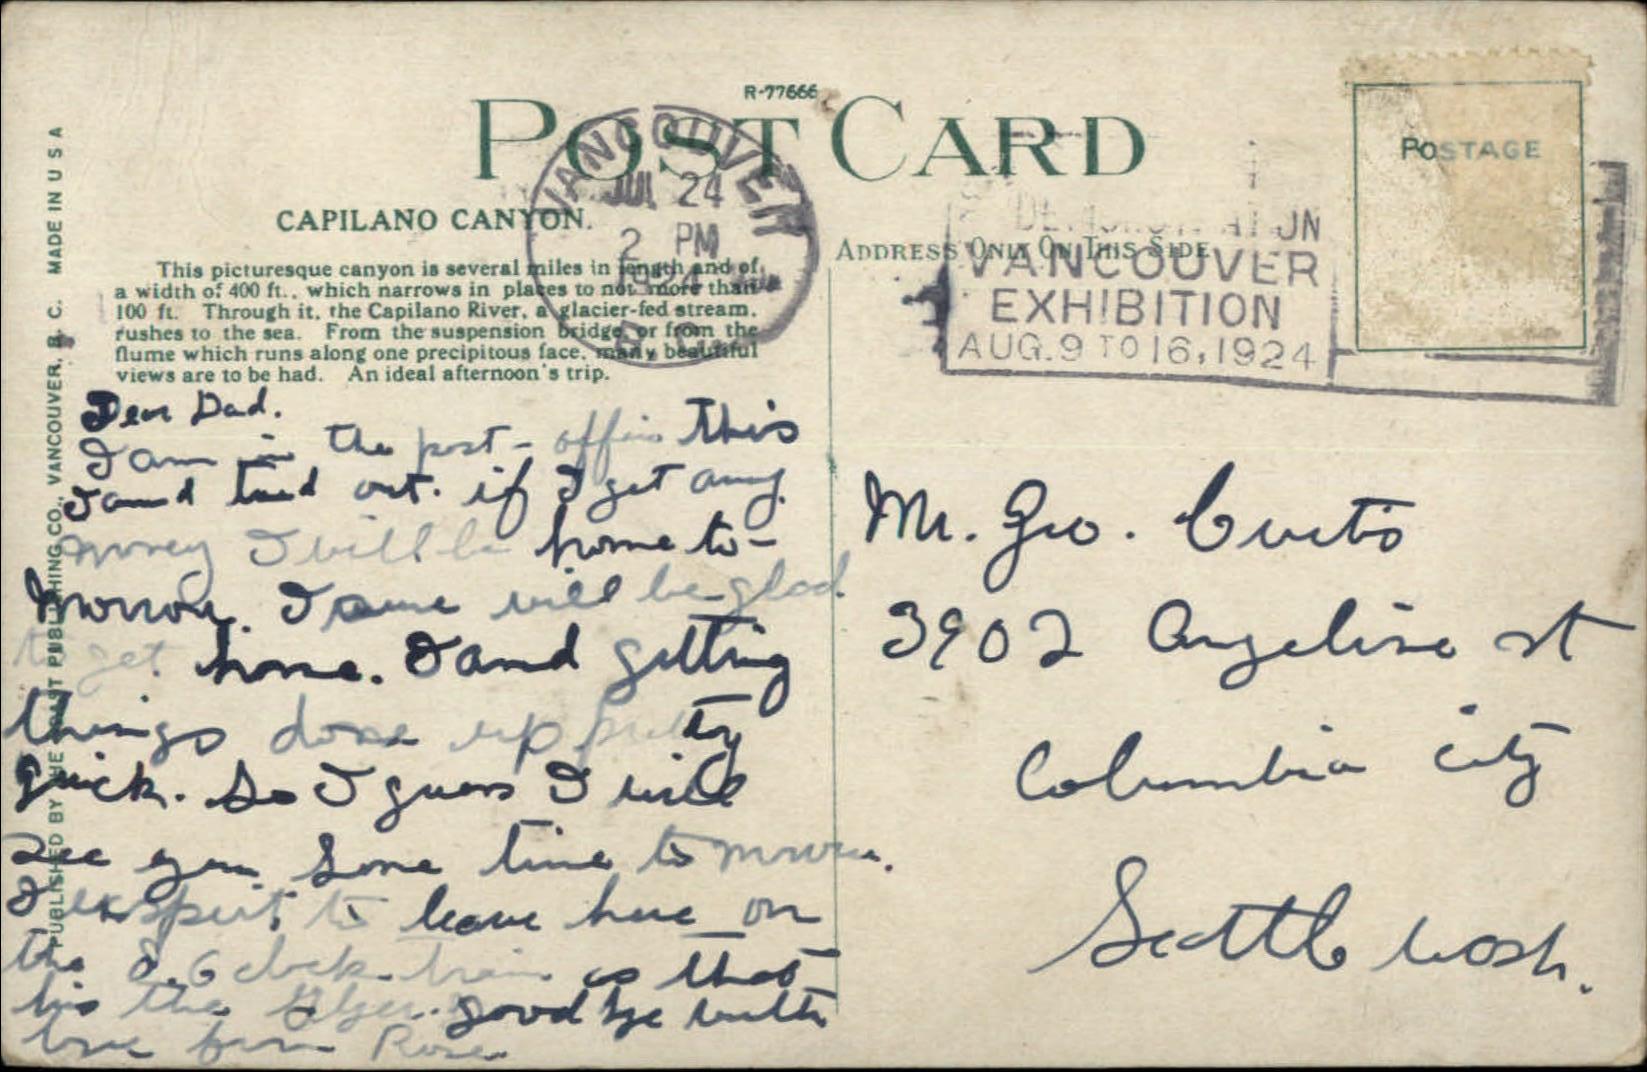 R-77666
POST CARD
VANCOUVER
JUL 24
2 PM
1924
B.C.
VANCOUVER
EXHIBITION
AUG. 9 TO 16, 1924
POSTAGE
ADDRESS ONLY ON THIS SIDE
CAPILANO CANYON.
This picturesque canyon is several miles in length and of
a width of 400 ft., which narrows in places to not more than
100 ft. Through it, the Capilano River, a glacier-fed stream,
rushes to the sea. From the suspension bridge, or from the
flume which runs along one precipitous face, many beautiful
views are to be had. An ideal afternoon's trip.
PUBLISHED BY THE COAST PUBLISHING CO., VANCOUVER, B. C. MADE IN U S A
Dear Dad.
I am in the post-office this
I and tired out. if I get any
money I will be home to-
morrow. I sure will be glad
to get home. I and getting
things done up pretty
quick. So I guess I will
see you some time to morrow.
I exspect to leave here on
the 8. O clock train as that
his the
good bye with
love from Rose.
Mr. Geo. Curtis
3902 Angeline st
Columbia City
Seattle Wash.